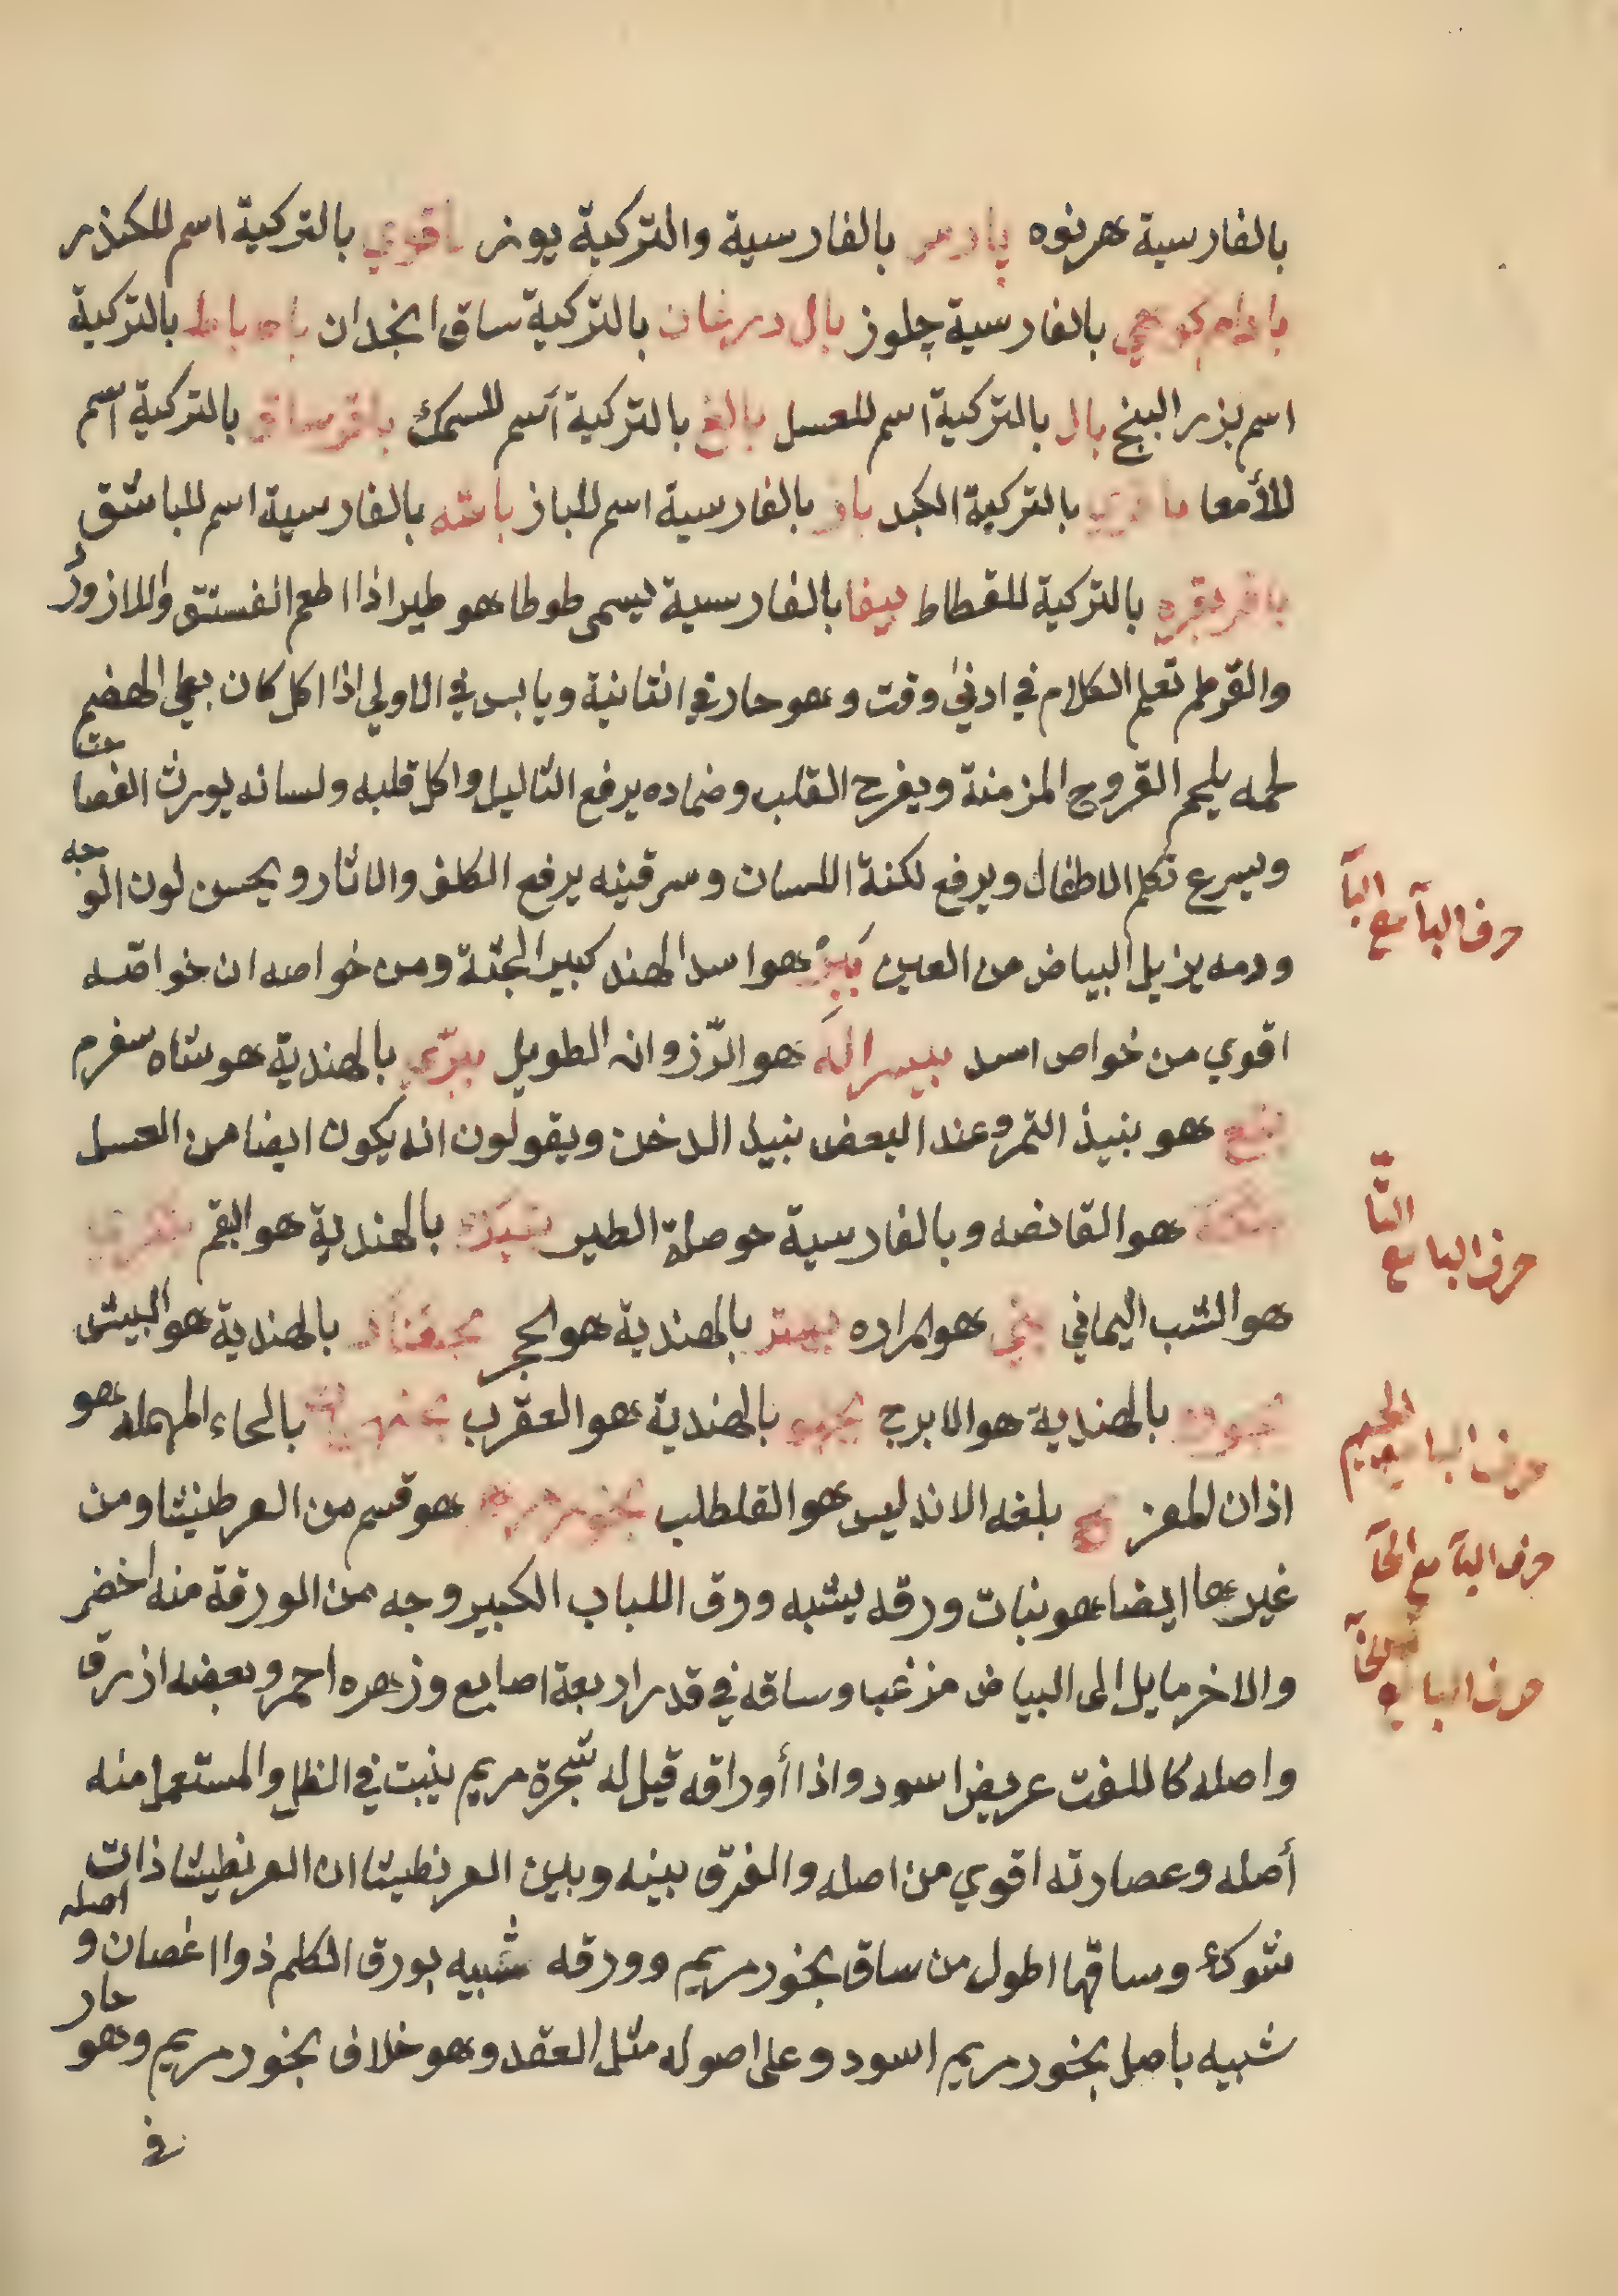 بالفارسية هرنوه پارس بالفارسية والتركية يونر باقوي بالتركية اسم للكندر
بادام كوهي بالفارسية چلوز بال درغان بالتركية ساق انجدان بالتركية
اسم بزر البنج بال بالتركية اسم للعسل بالغ بالتركية آسم للسمك باقرساق بالتركية آسم
للأمعا بالتركية الكبد باز بالفارسية اسم للباز باشه بالفارسية اسم للباشق
باقريقره بالتركية للقطاط ببغا بالفارسية يسمى طوطا هو طير اذا اطعم الفستق والارز ورد
والقرطم تعلم الكلام في ادنى وقت وهو حار في الثانية ويابس في الاولي اذا اكل كان بطي الهضم
لحمه يلحم القروح المزمنة ويفرح القلب وضماده يرفع الثاليل واكل قلبه ولسانه يورث الفصاحت
ويسرع تكلم الاطفال ويرفع لكنة اللسان وسرقينه يرفع الكلف والاثار ويحسن لون الوجه
ودمه يزيل البياض من العين ببر هو اسد الهند كبير الجثة ومن خواصه ان خواصه
حرف البآ مع البآ
اقوي من خواص اسد بيسراله هو الرّزوانه الطويل ببرّي بالهندية هو شاه سفرم
بتع هو بنيذ التمر وعند البعض بنيذ الدخن ويقولون انه يكون ايضا من العسل
هو القانصه وبالفارسية حوصلة الطير بالهندية هو البقم
حرف البا مع التا
هو الشب اليماني هو المراره بالهندية هو الحجر بالهندية هو البيش
بالهندية هو الابرج بجهو بالهندية هو العقرب بالحاء المهمله هو
حرف البا مع الجيم
اذان المعز بح بلغه الاندليس هو القلطلب بخور مريم هو قسم من العرطنيثا ومن
حرف البآ مع الحآ
غيرها ايضا هو نبات ورقه يشبه ورق اللباب الكبير وجه من الورقة منه اخضر
والاخر مايل الى البياض مزغبا وساقه في قدر اربعة اصابع وزهره احمر وبعضه ازرق
حرف البا مع الخآ
واصله كاللفت عريض اسود واذا أوراقه قيل له شجرة مريم ينبت في الظل والمستعمل منه
أصله وعصارته اقوي من اصله والفرق بينه وبين العرنطيثا ان العرنطيثا ذات
شوك وساقها اطول من ساق بخور مريم وورقه شبيه بورق الكلم ذوا اغصان و اصله
شبيه باصل بخور مريم اسود وعلى اصوله مثل العقد وهو خلاف بخور مريم وهو حار
في